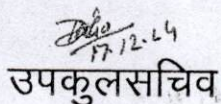 17.12.24
उपकुलसचिव